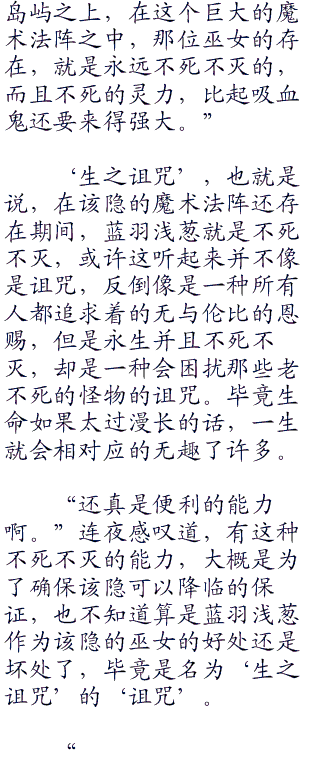 岛屿之上，在这个巨大的魔
术法阵之中，那位巫女的存
在，就是永远不死不灭的，
而且不死的灵力，比起吸血
鬼还要来得强大。”
‘生之诅咒’，也就是
说，在该隐的魔术法阵还存
在期间，蓝羽浅葱就是不死
不灭，或许这听起来并不像
是诅咒，反倒像是一种所有
人都追求着的无与伦比的恩
赐，但是永生并且不死不
灭，却是一种会困扰那些老
不死的怪物的诅咒。毕竟生
命如果太过漫长的话，一生
就会相对应的无趣了许多。
“还真是便利的能力
啊。”连夜感叹道，有这种
不死不灭的能力，大概是为
了确保该隐可以降临的保
证，也不知道算是蓝羽浅葱
作为该隐的巫女的好处还是
坏处了，毕竟是名为‘生之
诅咒’的‘诅咒’。
“